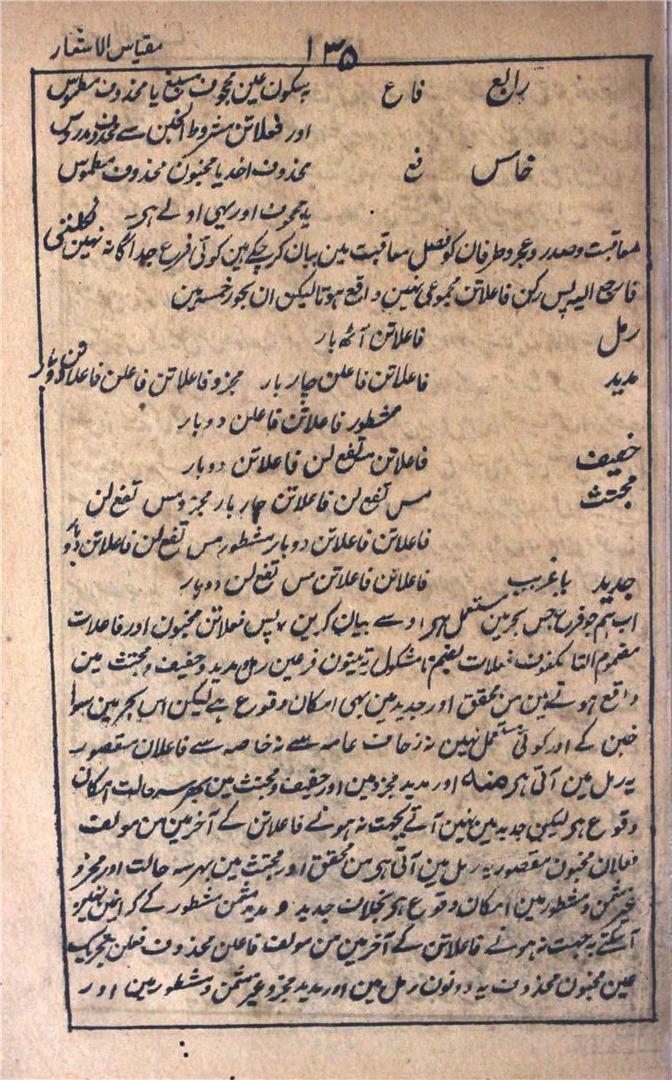 مقیاس الاشعار ۱۳۵
رابع فاع بسکون عین مجحوف مسبغ یا محذوف مطموس
اور فعلاتن مشروط الخبن سے محذوف مدروس
خامس فع محذوف احذ یا مخبون محذوف مطموس
یا مجحوف اور یہی اولے ہی۔
معاقبت و صدر و عجز و طرفان کو فصل معاقبت مین بیان کر چکے ہین کوئی فرع جداگانہ نہین نکلتی
فارجع الیہ پس رکن فاعلاتن مجموعی نہین واقع ہوتا لیکن ان بحور خمسہ مین
رمل فاعلاتن آٹھ بار
مدید فاعلاتن فاعلن چار بار مجزو فاعلاتن فاعلن فاعلاتن دو بار
مشطور فاعلاتن فاعلن دو بار
خفیف فاعلاتن مس تفع لن فاعلاتن دو بار
مجتث مس تفع لن فاعلاتن چار بار مجزو مس تفع لن
فاعلاتن فاعلاتن دو بار مشطور مس تفع لن فاعلاتن دو بار
جدید یا غریب فاعلاتن فاعلاتن مس تفع لن دو بار
اب ہم جو فرع جس بحر مین مستعمل ہی اوسے بیان کرین پس فعلاتن مخبون اور فاعلات
مضموم التا مکفوف فعلات بضم تا مشکول یہ تینون فرعین رمل و مدید و خفیف و مجتث مین
واقع ہوتے ہین من محقق اور جدید مین بھی امکان وقوع ہے لیکن اس بحر مین سوا
خبن کے اور کوئی مستعمل نہین نہ زحاف عامہ سے نہ خاصہ سے فاعلان مقصور
یہ رمل مین آتی ہی منہ اور مدید مجزو مین اور خفیف و مجتث مین بہر سہ حالت امکان
وقوع ہی لیکن جدید مین نہین آتے بجہت نہ ہونے فاعلاتن کے آخر مین من مولف
فعلان مخبون مقصور یہ رمل مین آتی ہی من محقق اور مجتث مین بہر سہ حالت اور مجزو
غیر مثمن و مشطور مین امکان وقوع ہی بخلاف جدید و مدید مثمن مشطور کے کہ انمین نہین
آسکتے بہ جہت نہ ہونے فاعلاتن کے آخر مین من مولف فاعلن محذوف فعلن بتحریک
عین مخبون محذوف یہ دونون رمل مین اور مدید مجزو غیر مثمن و مشطور مین اور